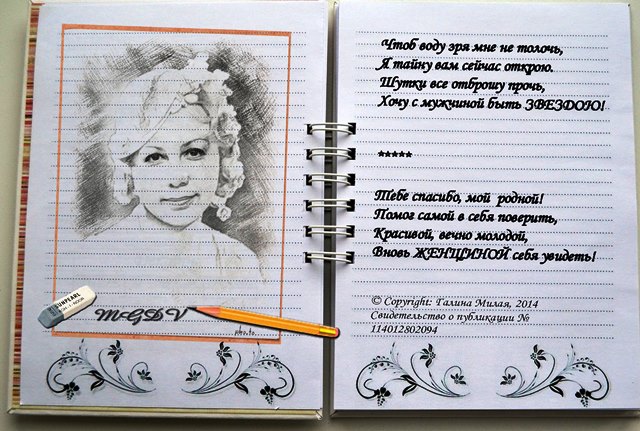 MGDV
Чтоб воду зря мне не толочь,
Я тайну вам сейчас открою.
Шутки все отброшу прочь,
Хочу с мужчиной быть ЗВЕЗДОЮ!
*****
Тебе спасибо, мой родной!
Помог самой в себя поверить,
Красивой, вечно молодой,
Вновь ЖЕНЩИНОЙ себя увидеть!
© Copyright: Галина Милая, 2014
Свидетельство о публикации №
114012802094